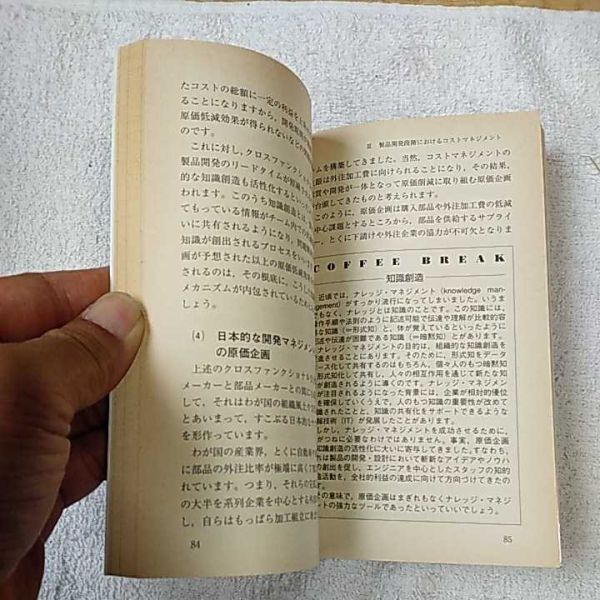 たコストの総額に一定の利益を
ることになりますから、開発
原価低減効果が得られないなどの
のです。
これに対し、クロスファンクショナ
製品開発のリードタイムが短縮
的な知識創造も活性化するといっ
われます。このうち知識創造とは、
てもっている情報がチーム内での
いに共有されるようになり、問題
知識が創出されるプロセスをいい
画が予想された以上の原価低減
されるのは、その根底に、こうした
メカニズムが内包されているため
しょう。
(4) 日本的な開発マネジメ
の原価企画
上述のクロスファンクショナル
メーカーと部品メーカーとの
して、それはわが国の組織風土
とあいまって、すこぶる日本的な
を形作っています。
わが国の産業界、とくに自動車
に部品の外注比率が極端に高く
れています。つまり、それらの
の大半を系列企業を中心とする外
し、自らはもっぱら加工組立に
84
II 製品開発段階におけるコストマネジメント
ムを構築してきました。当然、コストマネジメントの
眼は外注加工費に向けられることになり、その結果、
質や開発が一体となって原価削減に取り組む原価企画
台頭してきたものと考えられます。
このように、原価企画は購入部品や外注加工費の低減
中心課題とするところから、部品を供給するサプライ
ー、とくに下請けや外注企業の協力が不可欠となりま
COFFEE BREAK
知識創造
近頃では、ナレッジ・マネジメント(knowledge man-
gement)がすっかり流行になってしまいました。いうま
もなく、ナレッジとは知識のことです。この知識には、
操作手順や法則のように記述可能で伝達や理解が比較的容
な知識(＝形式知)と、体が覚えているといったように
述や伝達が困難である知識(＝暗黙知)とがあります。
ナレッジ・マネジメントの目的は、組織的な知識創造を
進させることにあります。そのために、形式知をデータ
ース化して共有するのはもちろん、個々人のもつ暗黙知
形式知化して共有し、人々の相互作用を通じて新たな知
が創造されるように導くのです。ナレッジ・マネジメン
が注目されるようになった背景には、企業が相対的優位
を確保していくうえで、人のもつ知識の重要性が改めて
識されたことと、知識の共有化をサポートできるような
報技術(IT)が発展したことがあります。
ナレッジ・マネジメントを成功させるために、
がつねに必要なわけではありません。事実、原価企画
知識創造の活性化に大いに寄与してきました。すなわち、
れは製品の開発・設計において斬新なアイデアやノウハ
の創出を促し、エンジニアを中心としたスタッフの知的
造活動を、全社的利益の達成に向けて方向づけてきたの
す。
の意味で、原価企画はまぎれもなくナレッジ・マネジ
ントの強力なツールであったといっていいでしょう。
85